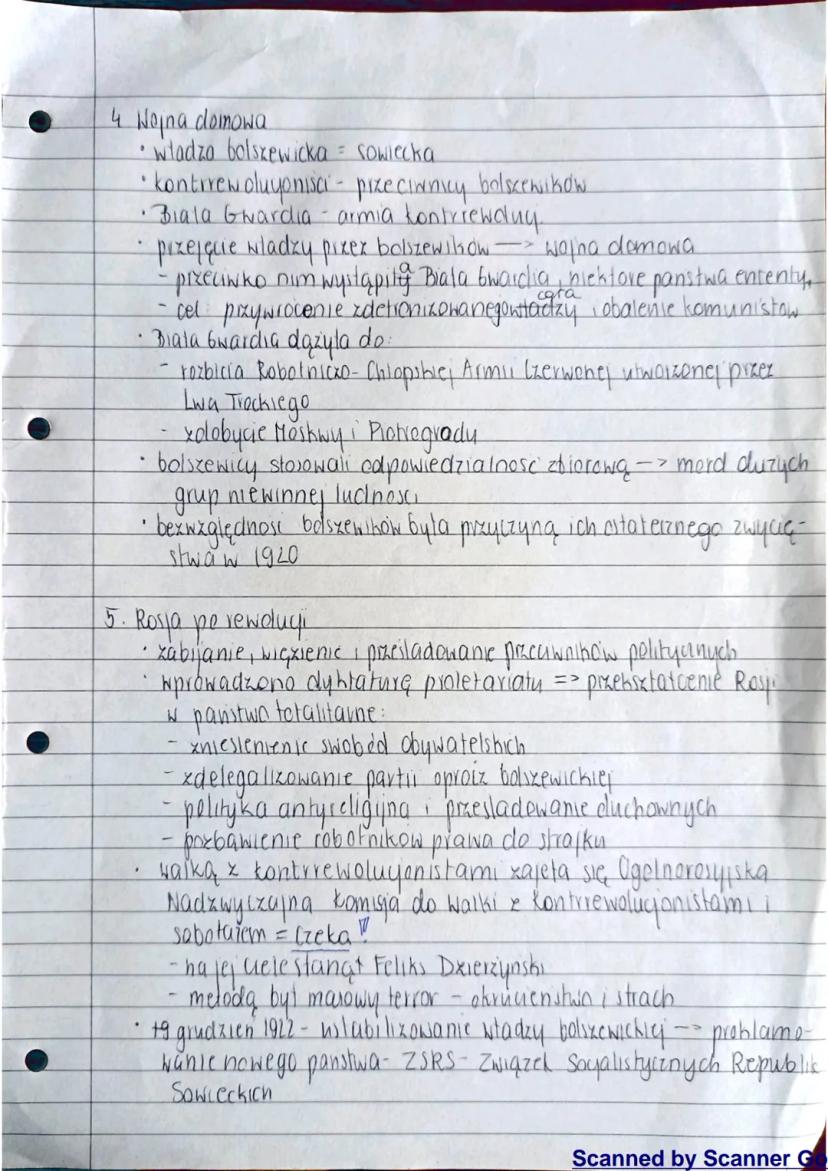 4 Wojna domowa
• władza bolszewicka = sowiecka
• kontrrewolucjoniści - przeciwnicy bolszewików
• Biała Gwardia - armia kontrrewolucj.
• przejęcie władzy przez bolszewików —> wojna domowa
- przeciwko nim wystąpiła Biała Gwardia, niektóre państwa ententy,
- cel: przywrócenie zdetronizowanego cara władzy i obalenie komunistów
• Biała Gwardia dążyła do:
- rozbicia Robotniczo-Chłopskiej Armii Czerwonej utworzonej przez
Lwa Trockiego
- zdobycie Moskwy i Piotrogrodu
• bolszewicy stosowali odpowiedzialność zbiorową —> mord dużych
grup niewinnej ludności
• bezwzględność bolszewików była przyczyną ich ostatecznego zwycię-
stwa w 1920
5. Rosja po rewolucji
• zabijanie, więzienie i prześladowanie przeciwników politycznych
• wprowadzono dyktaturę proletariatu => przekształcenie Rosji
w państwo totalitarne:
- zniesienienie swobód obywatelskich
- zdelegalizowanie partii oprócz bolszewickiej
- polityka antyreligijna i prześladowanie duchownych
- pozbawienie robotników prawa do strajku
• walką z kontrrewolucjonistami zajęła się Ogólnorosyjska
Nadzwyczajna Komisja do Walki z kontrrewolucjonistami i
sabotażem = Czeka!
- na jej czele stanął Feliks Dzierżyński
- metodą był masowy terror - okrucieństwo i strach
• grudzień 1922 - ustabilizowanie władzy bolszewickiej —> proklamo-
wanie nowego państwa - ZSRS - Związek Socjalistycznych Republik
Sowieckich
Scanned by Scanner Go